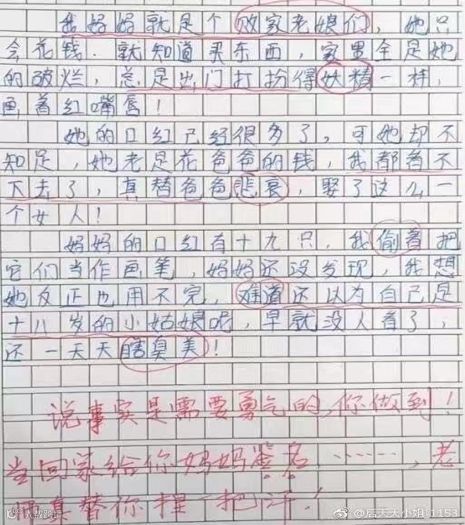 我妈妈就是个败家老娘们,她只
会花钱.就知道买东西,家里全是她
的破烂,总是出门打扮得妖精一样,
画着红嘴唇!
她的口红已经很多了,可她却不
知足,她老是花爸爸的钱,我都看不
下去了,真替爸爸悲哀,娶了这么一
个女人!
妈妈的口红有十九只,我偷着把
它们当作画笔,妈妈还没发现,我想
她反正也用不完,难道还以为自己是
十八岁的小姑娘呢,早就没人看了,
还一天天瞎臭美!
说事实是需要勇气的,你做到!
当回家给你妈妈签名……,老
师真替你捏一把汗!